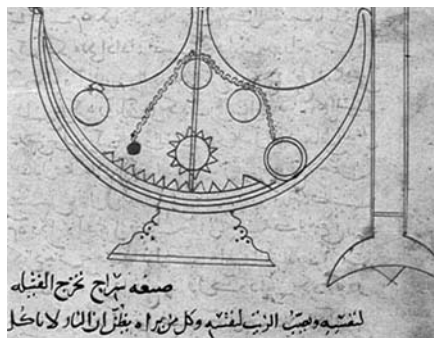 صنعه سراج تخرج الفتيله
لنفسه ويصب الزيت لنفسه وكل من يراه يظن ان النار لا تاكل